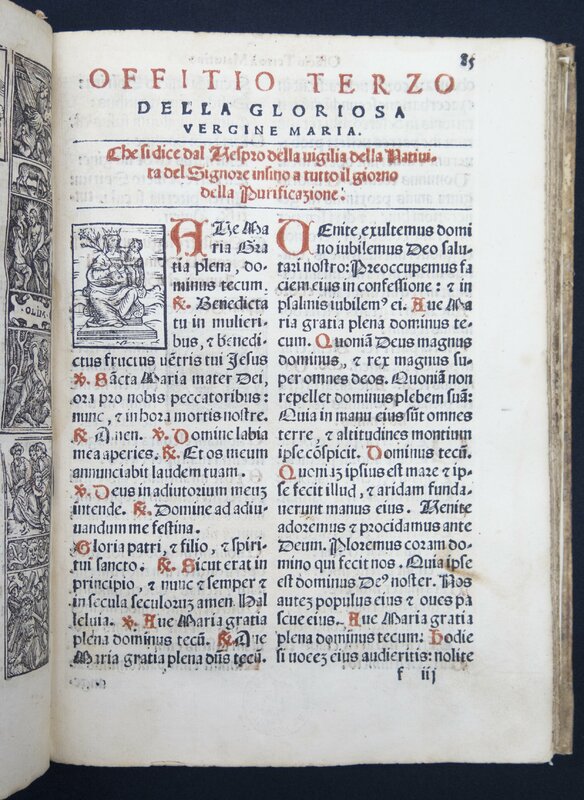 85
OFFITIO TERZO
DELLA GLORIOSA
VERGINE MARIA.
Che si dice dal Vespro della vigilia della Nativi,
ta del Signore insino a tutto il giorno
della Purificazione.
AVe Ma
ria Gra
tia plena, do-
minus tecum.
℟. Benedicta
tu in mulieri-
bus, ⁊ benedi-
ctus fructus uẽtris tui Jesus
℣. Sãcta Maria mater Dei,
ora pro nobis peccatoribus:
nunc, ⁊ in hora mortis nostre.
℟ Amen. ℣. Domine labia
mea aperies. ℟. Et os meum
annunciabit laudem tuam.
℣. Deus in adiutorium meuȝ
intende. ℟. Domine ad adiu-
uandum me festina.
Gloria patri, ⁊ filio, ⁊ spiri-
tui sancto. ℟. Sicut erat in
principio, ⁊ nunc ⁊ semper ⁊
in secula seculoruȝ amen. Hal
leluia. ℣. Aue Maria gratia
plena dominus tecũ. ℟. Aue
Maria gratia plena dñs tecũ.
UEnite, exultemus domi
no iubilemus Deo salu-
tari nostro: Preoccupemus fa
ciem eius in confessione: ⁊ in
psalmis iubilemꝰ ei. Aue Ma
ria gratia plena dominus te-
cum. Quoniã Deus magnus
dominus, ⁊ rex magnus su-
per omnes deos. Quoniã non
repellet dominus plebem suã:
Quia in manu eius sũt omnes
terre, ⁊ altitudines montium
ipse cõspicit. Dominus tecũ.
Quoniaȝ ipsius est mare ⁊ ip-
se fecit illud, ⁊ aridam funda-
uerunt manus eius. Venite
adoremus ⁊ procidamus ante
Deum. Ploremus coram do-
mino qui fecit nos. Quia ipse
est dominus Deꝰ noster. Nos
auteȝ populus eius ⁊ oues pa
scue eius. Aue Maria gratia
plena dominus tecum: Hodie
si voceȝ eius audieritis: nolite
f iij